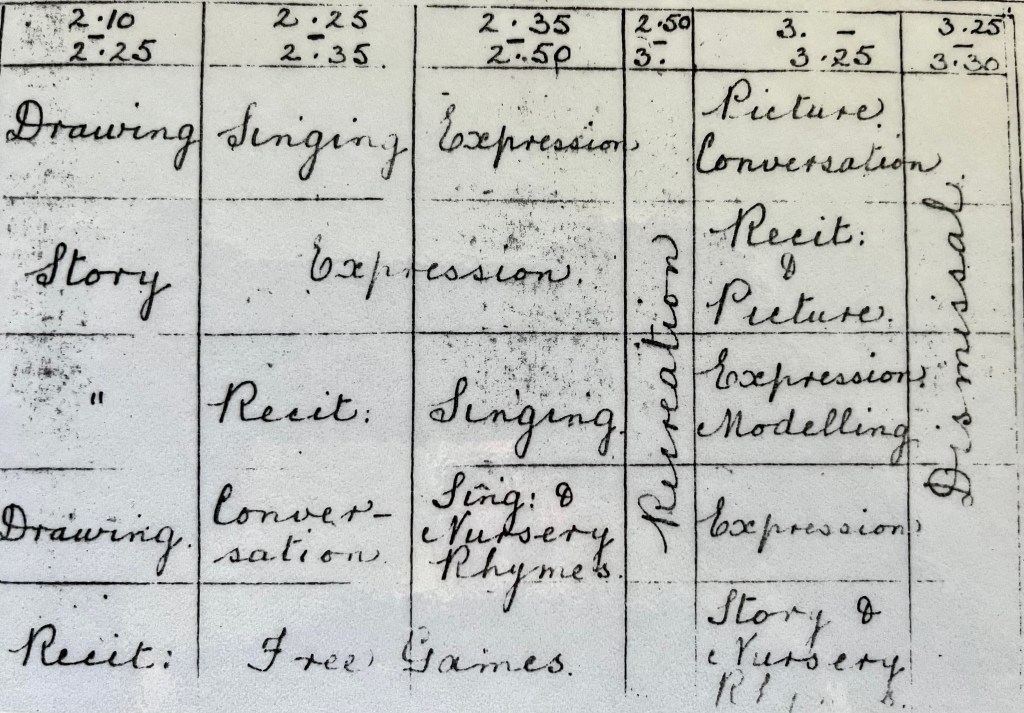 2.10 2.25 2.35 2.50 3. – 3.25
– – – – –
2.25 2.35. 2.50 3. 3.25 3.30
Drawing Singing Expression Picture
Conversation
Story Expression. Recit:
&
Picture.
Recreation
Dismissal.
" Recit: Singing. Expression.
Modelling
Drawing. Conver-
sation
Sing: &
Nursery
Rhymes.
Expression
Recit: Free Games. Story &
Nursery
Rhymes.